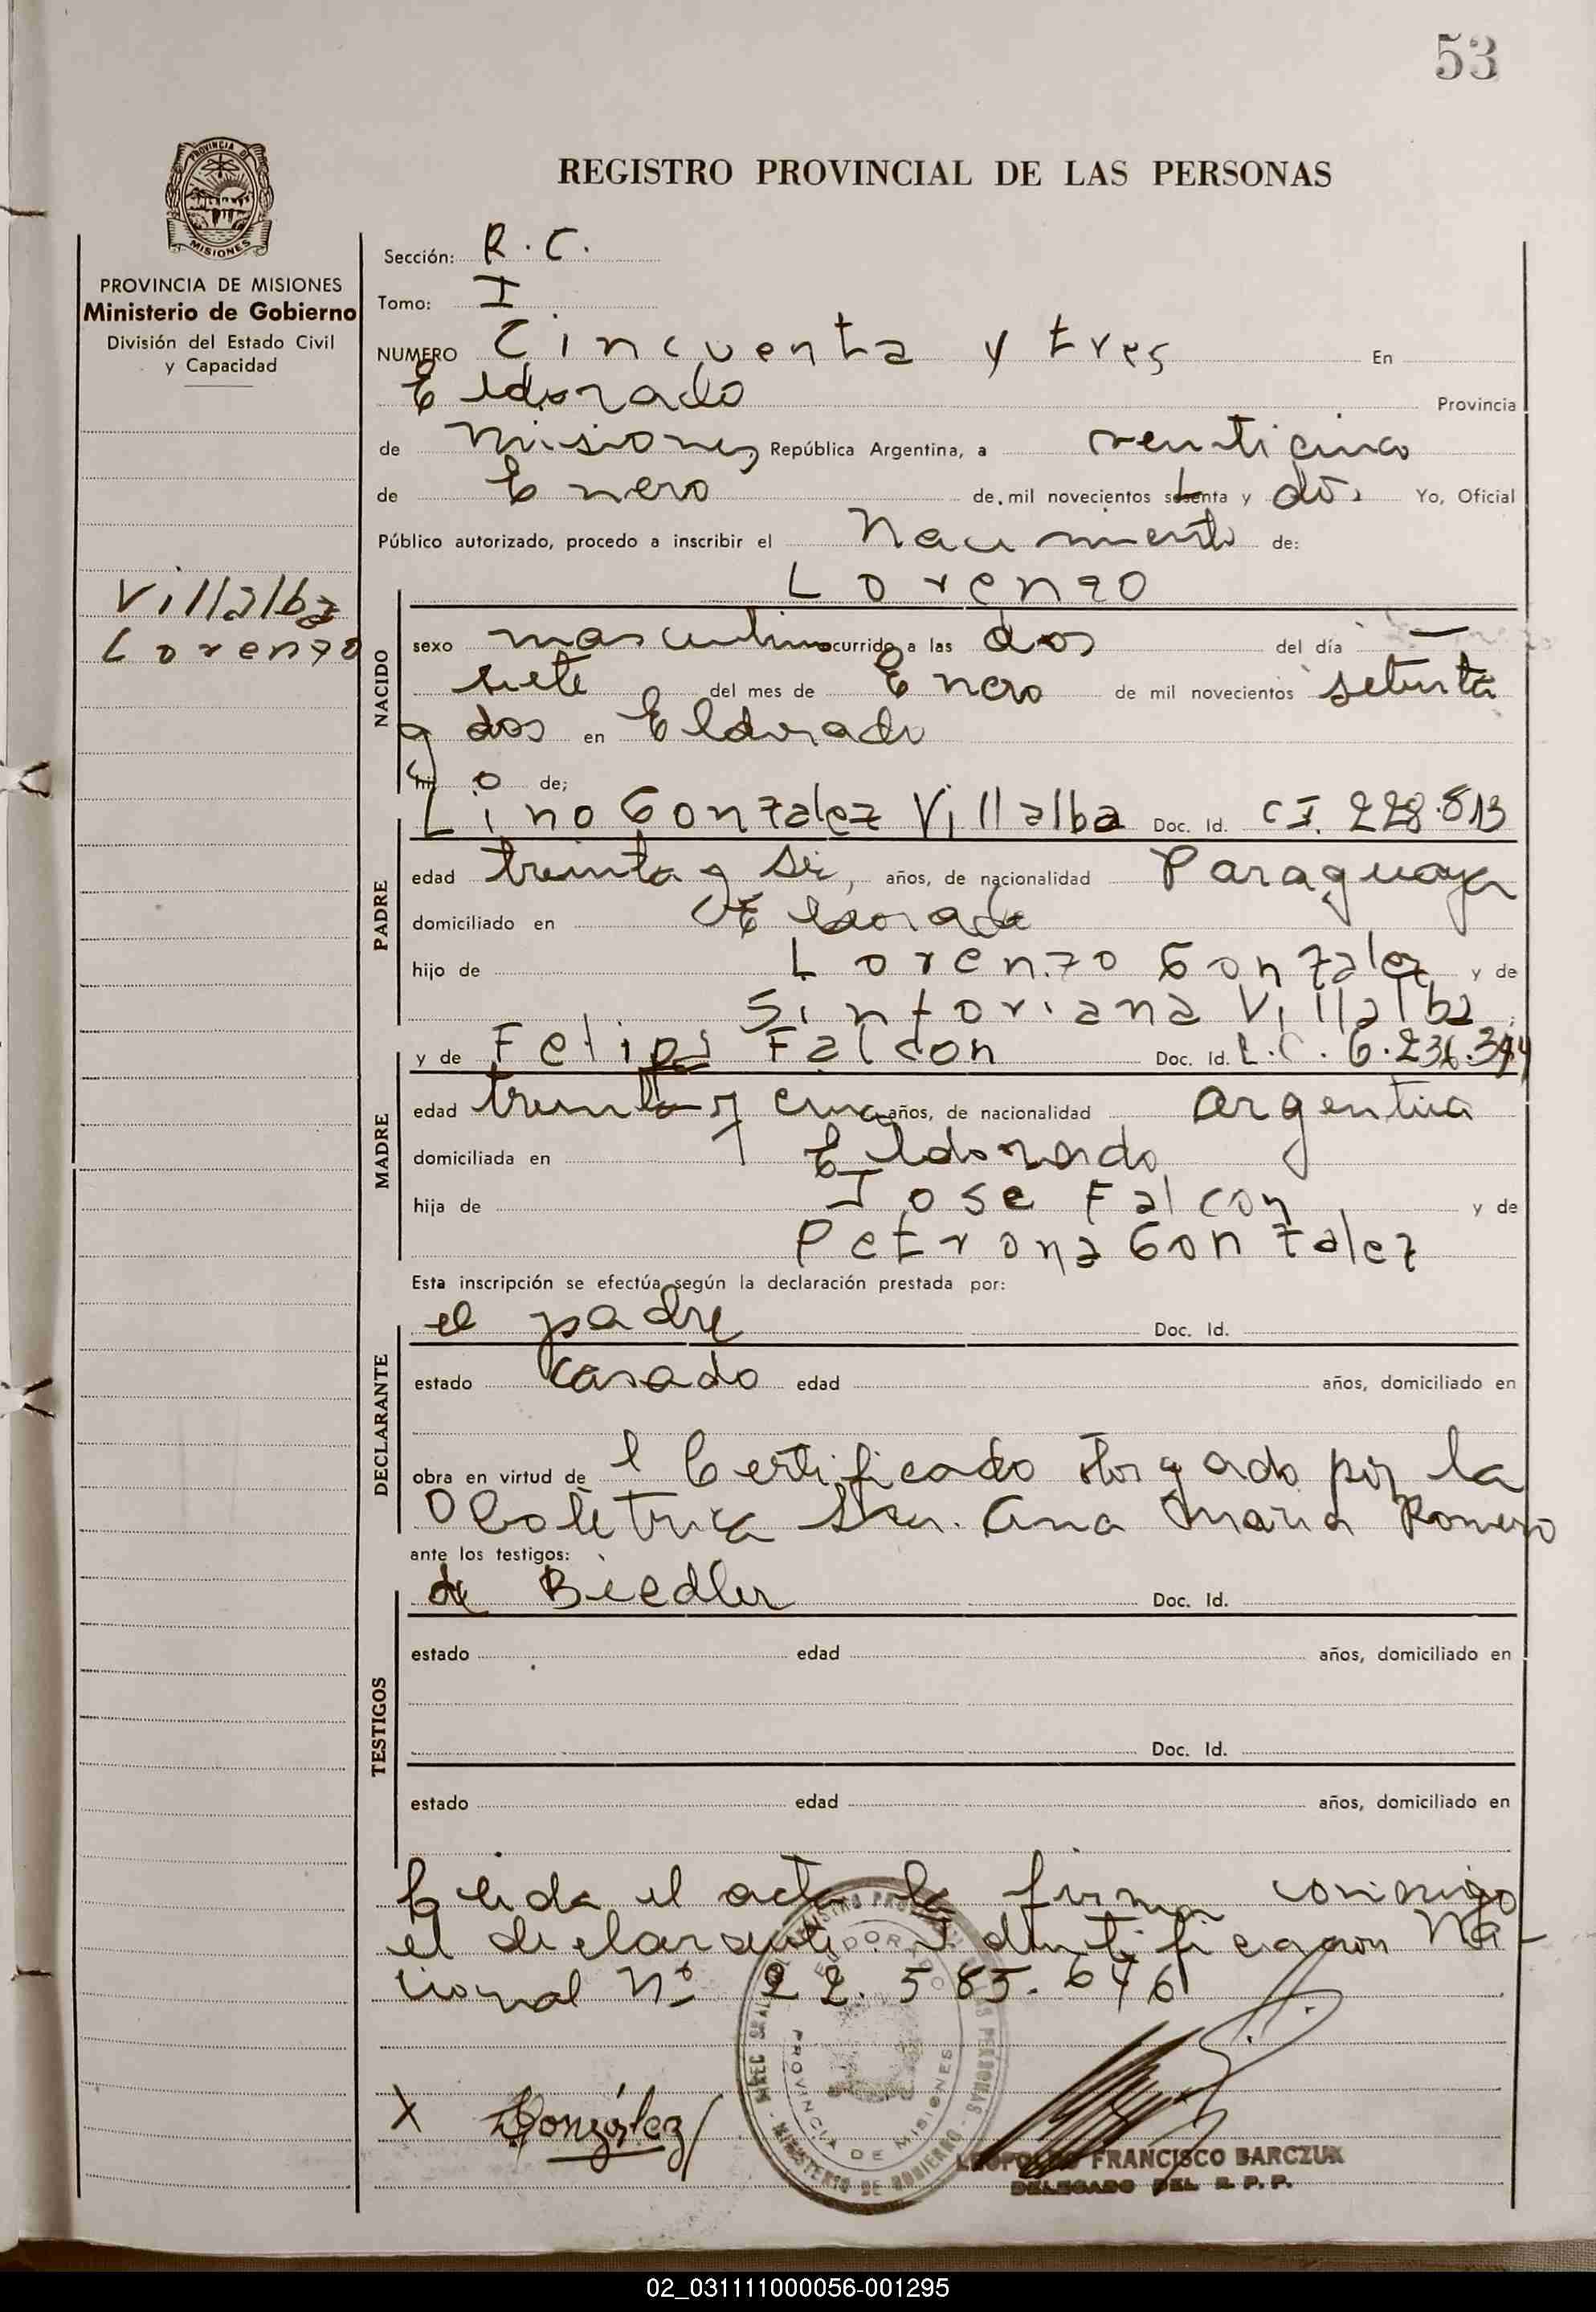 53
PROVINCIA DE
MISIONES
REGISTRO PROVINCIAL DE LAS PERSONAS
PROVINCIA DE MISIONES
Ministerio de Gobierno
División del Estado Civil
y Capacidad
Villalba
Lorenzo
Sección: R. C.
Tomo: I
NUMERO Cincuenta y tres En
Eldorado Provincia
de Misiones República Argentina, a veinticinco
de Enero de mil novecientos setenta y dos Yo, Oficial
Público autorizado, procedo a inscribir el Nacimiento de:
Lorenzo
NACIDO
sexo masculino ocurrido a las dos del día —
siete del mes de Enero de mil novecientos setenta
y dos en Eldorado
hijo de;
Lino Gonzalez Villalba Doc. Id. C.I. 228.813
PADRE
edad treinta y seis, años, de nacionalidad Paraguaya
domiciliado en Eldorado
hijo de Lorenzo Gonzalez y de
Sintoriana Villalba
y de Felipa Falcon Doc. Id. L.C. 6.236.394
MADRE
edad treinta y cinco años, de nacionalidad argentina
domiciliada en Eldorado
hija de Jose Falcon y de
Petrona Gonzalez
Esta inscripción se efectúa según la declaración prestada por:
el padre Doc. Id.
DECLARANTE
estado casado edad años, domiciliado en
obra en virtud de l Certificado otorgado por la
Obstetrica Sra. Ana Maria Romero
ante los testigos:
de Biedler Doc. Id.
TESTIGOS
estado edad años, domiciliado en
Doc. Id.
estado edad años, domiciliado en
Leida el acta la firma conmigo
el declarante. Identificacion Na-
cional Nº 22.585.646
X González
ELDORADO
PROVINCIA DE MISIONES
MINISTERIO DE GOBIERNO
LEOPOLDO FRANCISCO BARCZUK
DELEGADO DEL R. P. P.
02_031111000056-001295